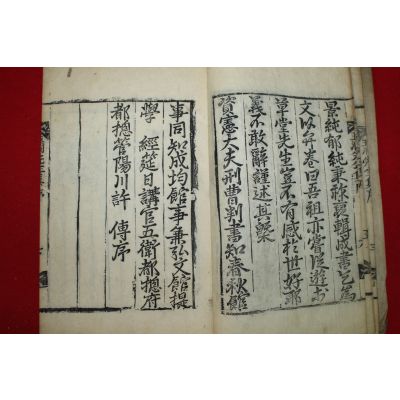 景純郁純秉 轉成書乞爲
文以弁卷曰吾祖亦嘗 遊於
草堂先生豈不有感於世好耶
義不敢辭謹述其槩
資憲大夫刑曹判書知春秋館
事同知成均館事兼弘文館提
學 經筵日講官五衛都摠府
都摠管陽川許 傳序